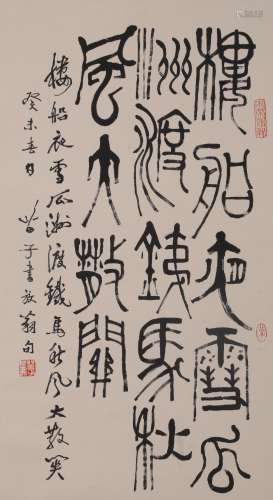 樓船夜雪瓜
洲渡鐵馬秋
風大散關
樓船夜雪瓜洲渡鐵馬秋風大散關
癸未春
子書放翁句